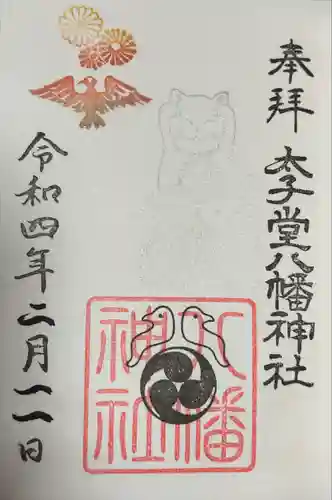 奉拝
太子堂八幡神社
八幡
神社
令和四年二月二二日